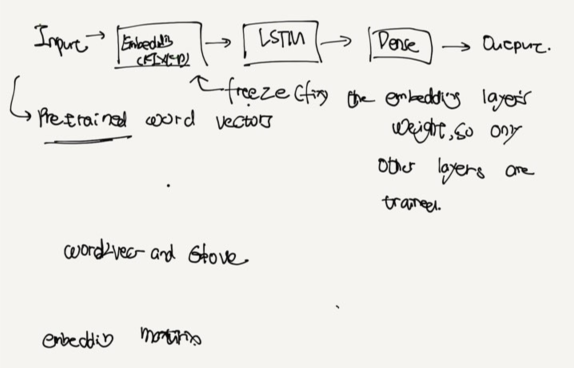 Input → Embeddin (FIXED) → LSTM → Dense → Output.
freeze (fix) the embedding layer's
Pretrained word vectors
weight, so only
other layers are
trained.
word2vec and Glove
embeddin matrix